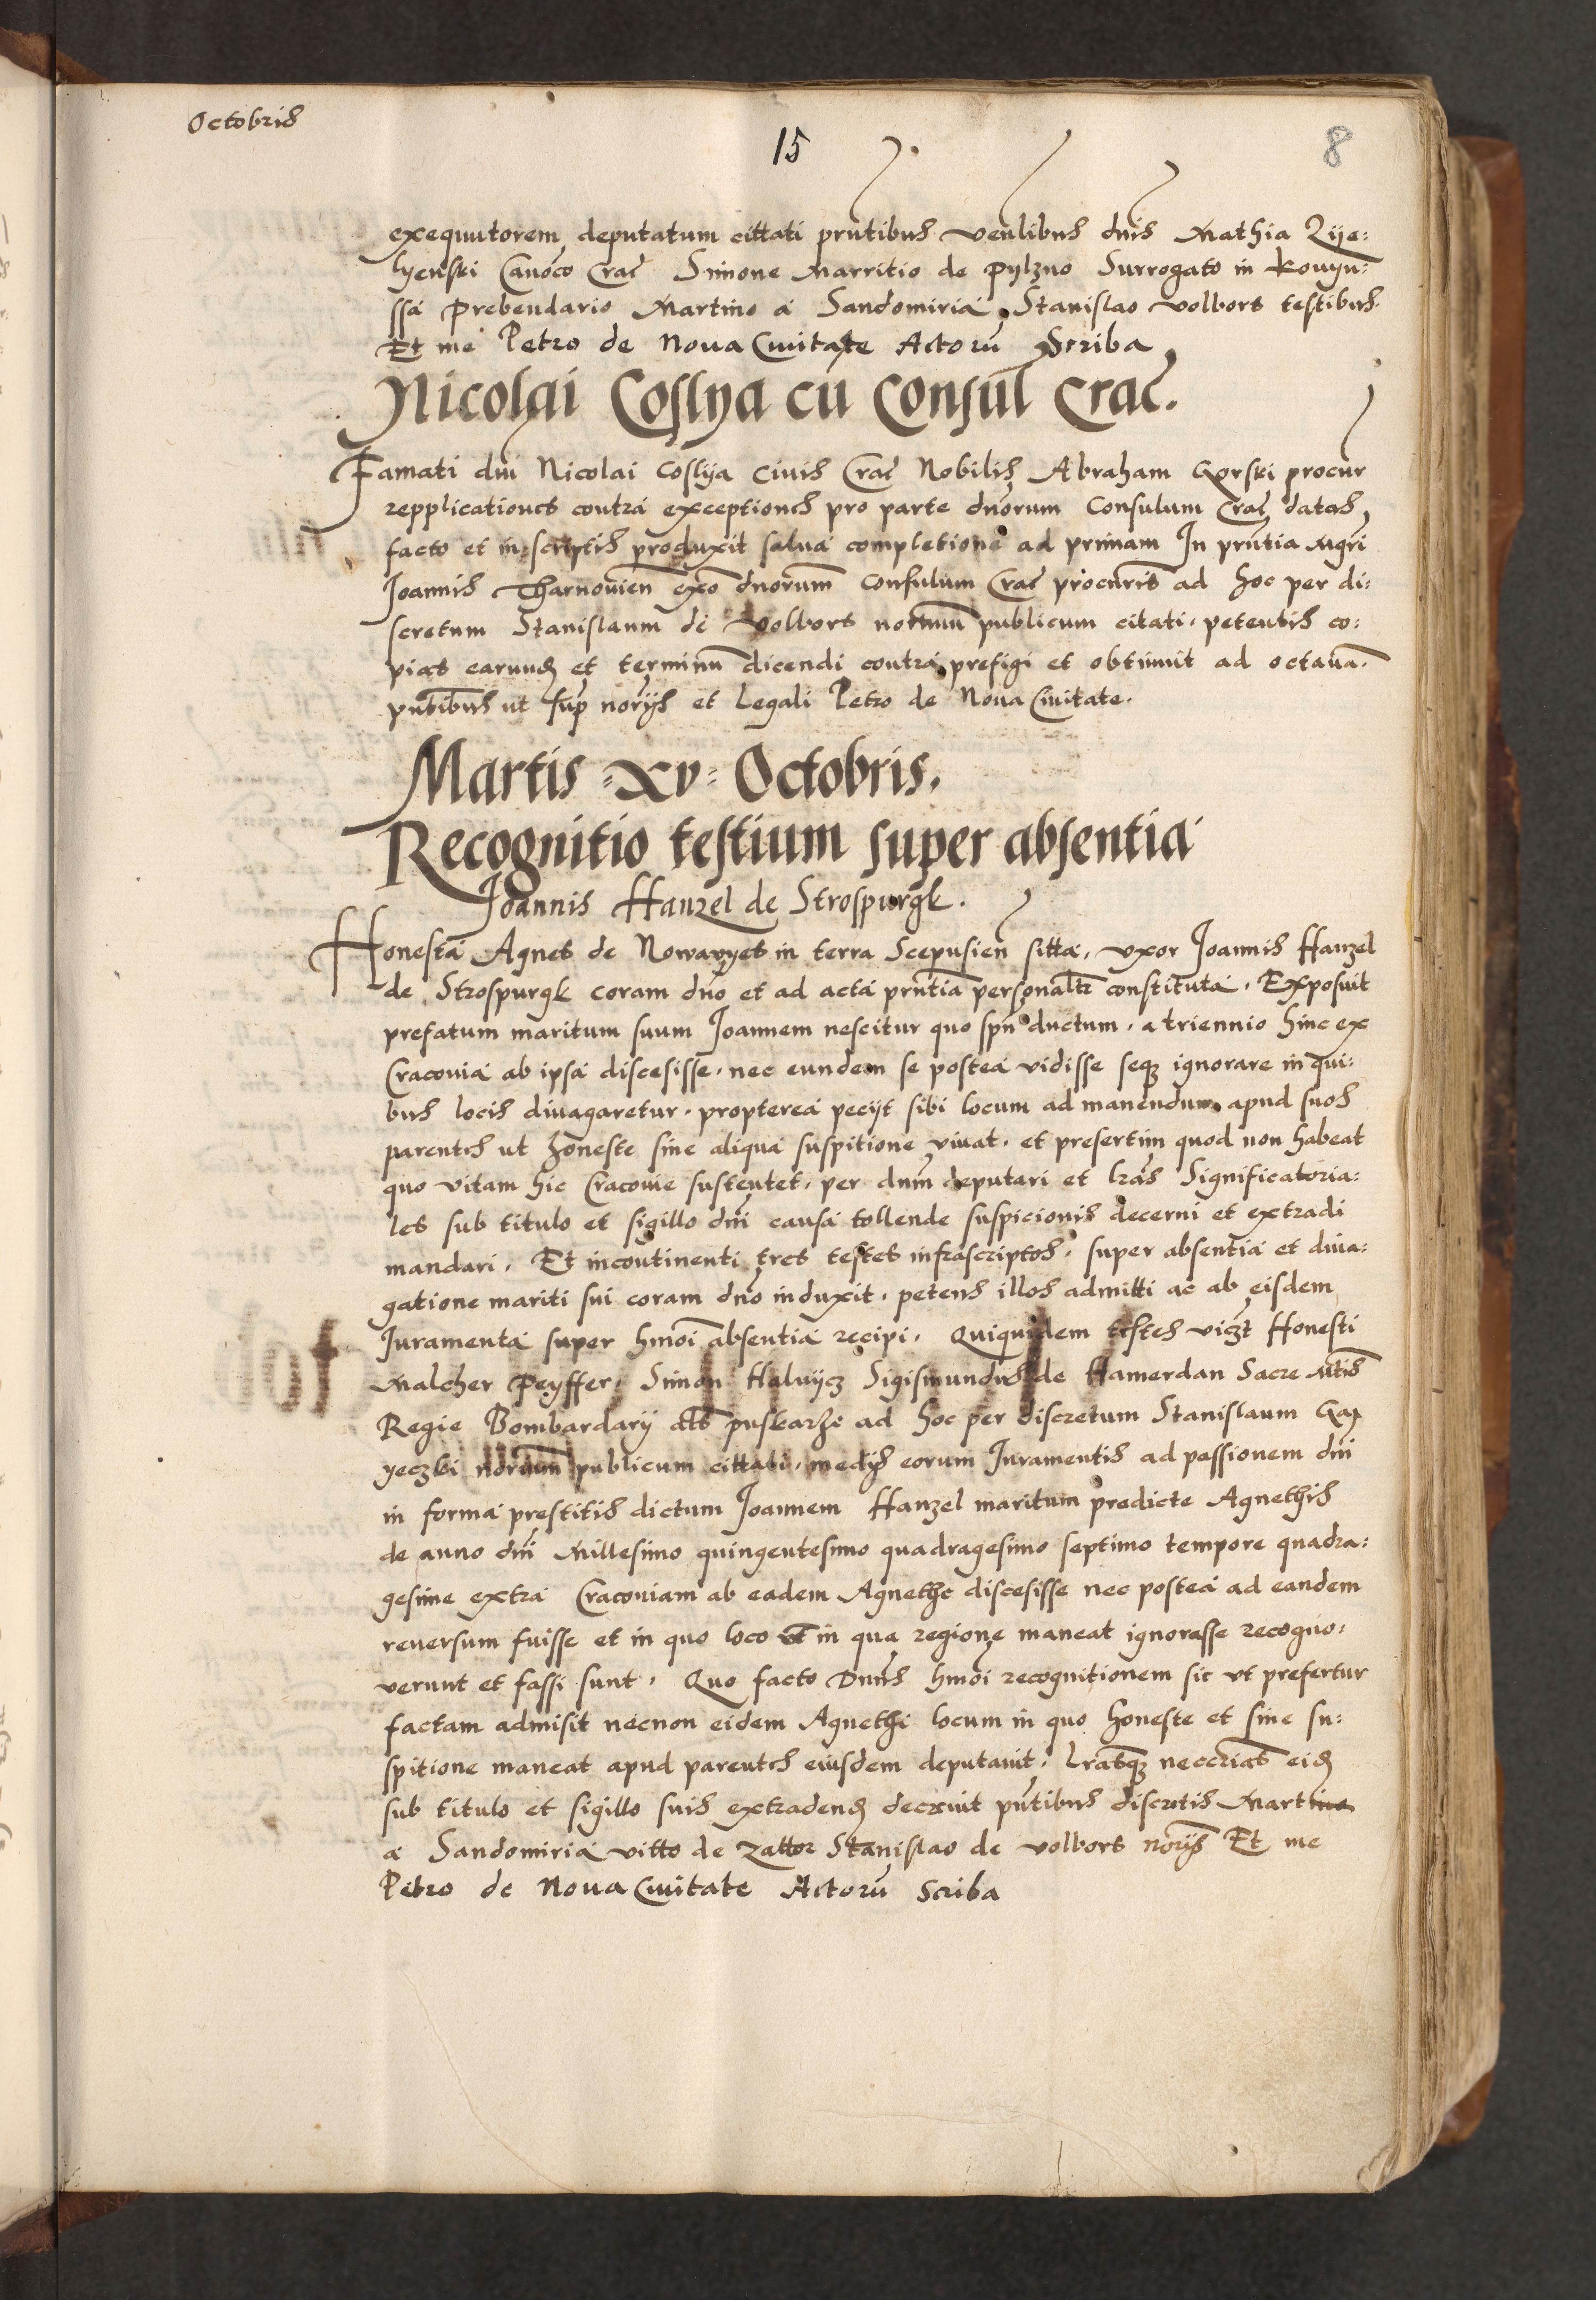 Octobris
15
8
exequutorem deputatum cittati pn̄tibus ven̄libus dn̄is Mathia Zije=
lyenski Canōco Crac̄ Simone Marritio de pylzno Surrogato in
ssa prebendario Martino a Sandomiria Stanislao volbors testibus.
Et me Petro de Noua Ciuitate Actorū Scriba
Nicolai Coslya cū Consul̄ Crac̄.
Famati dn̄i Nicolai Coslya Ciuis Crac̄ Nobilis Abraham Gorski procur̄
repplicationes contra exceptiones pro parte dn̄orum Consulum Crac̄ datas
facto et in scriptis produxit salua completione ad primam In pn̄tia Mgr̄i
Joannis Tharnouien̄ ex͞o dn̄orum Consulum Crac̄ procur̄is ad hoc per di=
scretum Stanislaum de Volbors not̄rium publicum citati, petentis co=
pias earund̄ et terminū dicendi contra prefigi et obtinuit ad octaua.
pn̄tibus ut sup̄ nor̄ijs et Legali Petro de Noua Ciuitate.
Martis =xv= Octobris.
Recognitio testium super absentia
Joannis Hanzel de Strospurgk.
Honesta Agnes de Nowawyes in terra Scepusien̄ sitta, vxor Joannis Hanzel
de Strospurgk coram dn̄o et ad acta pn̄tia personalr̄ constituta. Exposuit
prefatum maritum suum Joannem nescitur quo spn̄ ductum, a triennio hinc ex
Cracouia ab ipsa discesisse, nec eundem se postea vidisse seqz ignorare in qui=
bus locis diuagaretur, propterea pecijt sibi locum ad manendum apud suos
parentes ut honeste sine aliqua suspitione viuat, et presertim quod non habeat
quo vitam hic Cracouie sustentet, per dn̄m deputari et lr̄as Significatoria=
les sub titulo et sigillo dn̄i causa tollende suspicionis decerni et extradi
mandari. Et incontinenti tres testes infrascriptos, super absentia et diua=
gatione mariti sui coram dn̄o induxit, petens illos admitti ac ab eisdem
Juramenta super hm̄oi absentia recipi. Quiquidem testes viczt Honesti
Malcher Peyffer, Simon Haluycz Sigismundus de Hamerdan Sacre M̄tis
Regie Bombardarij al̄s puskarze ad hoc per discretum Stanislaum Ga
yeczki nor̄ium publicum cittati, medijs eorum Juramentis ad passionem dn̄i
in forma prestitis dictum Joannem Hanzel maritum predicte Agnethis
de anno dn̄i Millesimo quingentesimo quadragesimo septimo tempore quadra=
gesime extra Cracouiam ab eadem Agnethe discesisse nec postea ad eandem
reuersum fuisse et in quo loco vl̄ in qua regione maneat ignorasse recogno=
verunt et fassi sunt. Quo facto Dn̄us hm̄oi recognitionem sic vt prefertur
factam admisit necnon eidem Agnethi locum in quo honeste et sine su=
spitione maneat apud parentes eiusdem deputauit, Lr̄asqz neccr̄ias eid̄
sub titulo et sigillo suis extradend̄ decreuit pn̄tibus discretis Martino
a Sandomiria vitto de Zattor Stanislao de volbors nor̄ijs Et me
Petro de Noua Ciuitate Actorū Scriba